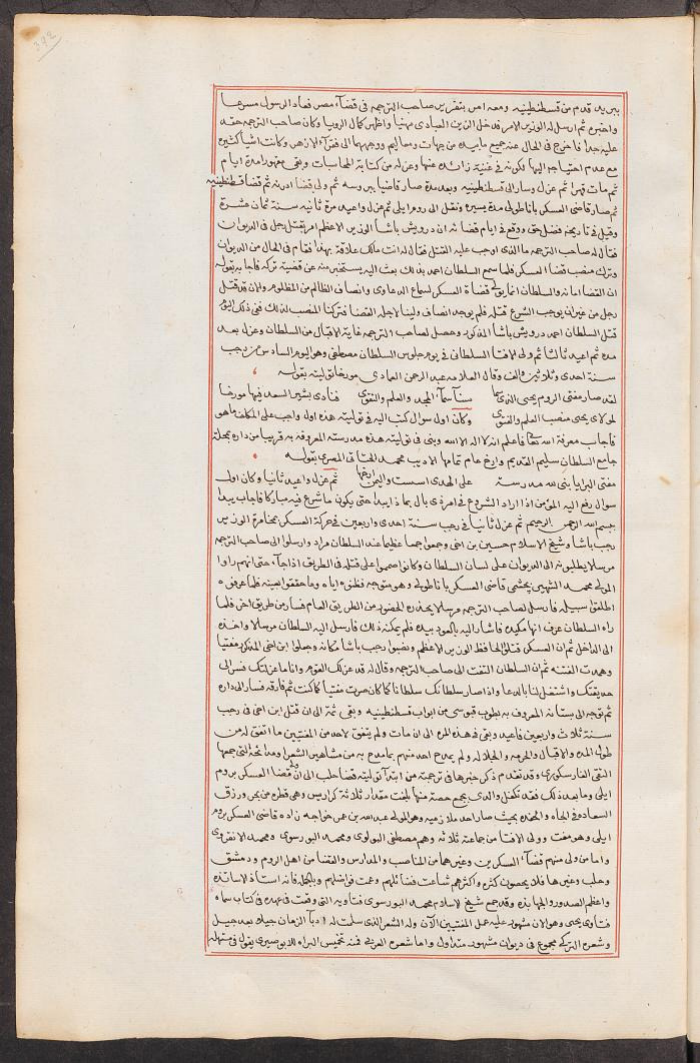 392
ببريد قدم من قسطنطينيه ومعه امر بتقرير صاحب الترجمه فى قضاء مصر فعاد الرسول مسرعا
واخبره ثم ارسل له الوزير الامر فدخل الزين العبادى مهنيا واظهر كمال الرويا وكان صاحب الترجمه حقد
عليه جدا فاخرج فى الحال عنه جميع ما بيده من جهات ومعاليم ووجهها الى فقراء الازهر وكانت اشيا كثيره
مع عدم احتياجه اليها لكونه فى غنية زائده عنها وعزله من كتابة المحاسبات وبقى مقهورا مدة ايام
ثم مات قهرا ثم عزل وسار الى قسطنطينيه وبعد مدة صار قاضيا ببروسه ثم ولى قضا ادرنه ثم قضا قسطنطينيه
ثم صار قاضى العسكر باناطولى مدة يسيره ونقل الى روم ايلى ثم عزل واعيد مرة ثانيه سنة ثمان عشرة
وقيل فى تاريخه فضل حق ووقع فى ايام قضائه ان درويش باشا الوزير الاعظم امر بقتل رجل فى الديوان
فقال له صاحب الترجمه ما الذى اوجب عليه القتل فقال له انت مالك علاقة بهذا فقام فى الحال من الديوان
وترك منصب قضا العسكر فلما سمع السلطان احمد بذلك بعث اليه يستخبر منه عن قضية تركه فاجابه بقوله
ان القضا امانه والسلطان انما يولى قضاة العسكر لسماع الدعاوى وانصاف الظالم من المظلوم والان قد قتل
رجل من غير ان يوجب الشرع قتله فلم يوجد انصاف ولينا لاجله القضا فتركنا المنصب لذلك ففى ذلك اليوم
قتل السلطان احمد درويش باشا المذكور وحصل لصاحب الترجمه غاية الاقبال من السلطان وعزل بعد
مدة ثم اعيد ثالثا ثم ولى الافتا السلطانى فى يوم جلوس السلطان مصطفى وهو اليوم السادس من رجب
سنة احدى وثلاثين والف وقال العلامه عبد الرحمن العمادى مورخا توليته بقوله
لقد صار مفتى الروم يحيى الذى سما سناء سماء المجد والعلم والتقوى فنادى بشير السعد فيها مورخا
لمولاى يحيى منصب العلم والفتوى وكان اول سوال كتب اليه فى توليته هذه اول واجب على المكلف ما هو
فاجاب معرفة الله تعالى فاعلم انه لا اله الا الله وبنى فى توليته هذه مدرسته المعروفه به قريبا من داره بمحلة
جامع السلطان سليم القديم وارخ عام تمامها الاديب محمد الحتاتى المصرى بقوله
مفتى البرايا بنى لله مدرسة على الهدى اسست واليمن ارخها ثم عزل واعيد ثانيا وكان اول
سوال رفع اليه المؤمن اذا اراد الشروع فى امر ذى بال بماذا يبدا حتى يكون ما شرع فيه مباركا فاجاب يبدا
ببسم الله الرحمن الرحيم ثم عزل ثانيا فى رجب سنة احدى واربعين فى حركة العسكر بمخامرة الوزير
رجب باشا وشيخ الاسلام حسين بن اخى وجمعوا جمعا عظيما عند السلطان مراد وارسلوا الى صاحب الترجمه
مرسلا يطلبونه الى الديوان على لسان السلطان وكانوا صمموا على قتله فى الطريق اذا جاء حتى انهم راوا
المولى محمد الشهير بچشمى قاضى العسكر باناطولى وهو متوجه فظنوه اياه وما حققوا بعينه فلما عرفوه
اطلقوا سبيله فارسل لصاحب الترجمه مرسلا يحذره الحضور من الطريق العام فسار من طريق اخر فلما
راه السلطان عرف انها مكيده فاشار اليه بالعود بيده فلم يمكنه ذلك فارسل اليه السلطان مرسلا واخذه
الى الداخل ثم ان العسكر قتلوا الحافظ الوزير الاعظم ونصبوا رجب باشا مكانه وجعلوا ابن اخى المذكور مفتيا
وهمدت الفتنه ثم ان السلطان التفت الى صاحب الترجمه وقال له قد عزلك القوم وانا ما عزلتك فسر الى
حديقتك واشتغل لنا بالدعا واذا صار سلطانك سلطانا كما كان صرت مفتيا كما كنت ثم فارقه فسار الى داره
ثم توجه الى بستانه المعروف به بطوب قپوسى من ابواب قسطنطينيه وبقى ثمة الى ان قتل ابن اخى فى رجب
سنة ثلاث واربعين فاعيد وبقى فى هذه المره الى ان مات ولم يتفق لاحد من المفتيين ما اتفق له من
طول المده والاقبال والحرمه والجلاله ولم يمدح احد منهم بما مدح به من مشاهير الشعرا ومدائحه التى جمعها
التقى الفارسكورى وقد تقدم ذكر خبرها فى ترجمته من ابتداء توليته قضا حلب الى ان ولى قضا العسكر بروم
ايلى وما بعد ذلك فقد تكفل والدى بجمع حصة منها بلغت مقدار ثلاثة كراريس وهى قطره من بحر ورزق
السعاده فى الجاه والحفده بحيث صار احد ملازميه وهو المولى عبد الله بن عمر خواجه زاده قاضى العسكر بروم
ايلى وهو مفت وولى الافتا من جماعته ثلاثه وهم مصطفى البولوى ومحمد البورسوى ومحمد الانقروى
واما من ولى منهم قضاء العسكرين وغيرهما من المناصب والمدارس والقضا من اهل الروم ودمشق
وحلب وغيرها فلا يحصون كثره واكثرهم شاعت فضائلهم وعمت فواضلهم وبالجمله فانه استاذ الاساتذه
واعظم الصدور والجهابذه وقد جمع شيخ الاسلام محمد البورسوى فتاويه التى وقعت فى عهده فى كتاب سماه
فتاوى يحيى وهو الان مشهور عليه عمل المفتيين الآن وله الشعر الذى سلمت له ادباء الزمان جيلا بعد جيل
وشعره التركى مجموع فى ديوان مشهور متداول واما شعره العربى فمنه تخميس البراه للابوصيرى يقول فى مستهله